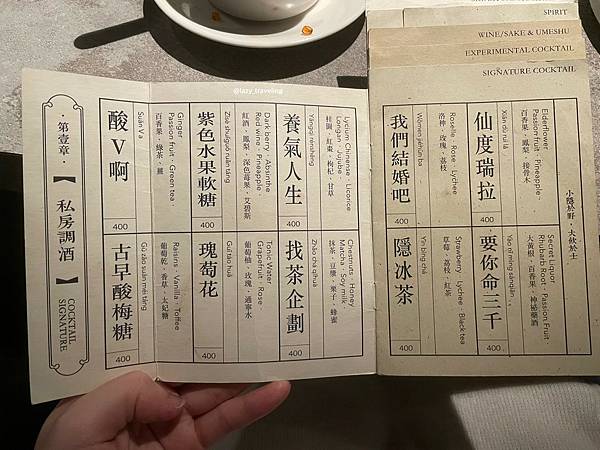 SPIRIT
WINE/SAKE & UMESHU
EXPERIMENTAL COCKTAIL
SIGNATURE COCKTAIL
@lazy_traveling
小隱於野·大飲於士
仙度瑞拉
Xiān dù ruì lā
Elderflower
Passion fruit · Pineapple
百香果、鳳梨、接骨木
400
要你命三千
Yào nǐ mìng sānqiān
Secret Liquor
Rhubarb Root · Passion Fruit
大黃根、百香果、神祕藥酒
400
我們結婚吧
Wǒmen jiéhūn ba
Roselle · Rose · Lychee
洛神、玫瑰、荔枝
400
隱冰茶
Yǐn bīng chá
Strawberry · Lychee · Black tea
草莓、荔枝、紅茶
400
養氣人生
Yǎngqì rénshēng
Lycium Chinense · Licorice
Longan · Jujube
桂圓、紅棗、枸杞、甘草
400
找茶企劃
Zhǎo chá qìhuà
Chestnuts · Honey
Matcha · Soy milk
抹茶、豆漿、栗子、蜂蜜
400
紫色水果軟糖
Zǐsè shuǐguǒ ruǎn táng
Dark berry · Absinthe
Red wine · Pineapple
紅酒、鳳梨、深色莓果、艾碧斯
400
瑰萄花
Guī táo huā
Tonic Water
Grapefruit · Rose
葡萄柚、玫瑰、通寧水
400
酸V啊
Suān V a
Ginger
Passion fruit · Green tea
百香果、綠茶、薑
400
古早酸梅糖
Gǔ zǎo suān méi táng
Raisins · Vanilla · Toffee
葡萄乾、香草、太妃糖
400
第壹章·【私房調酒】
COCKTAIL
SIGNATURE